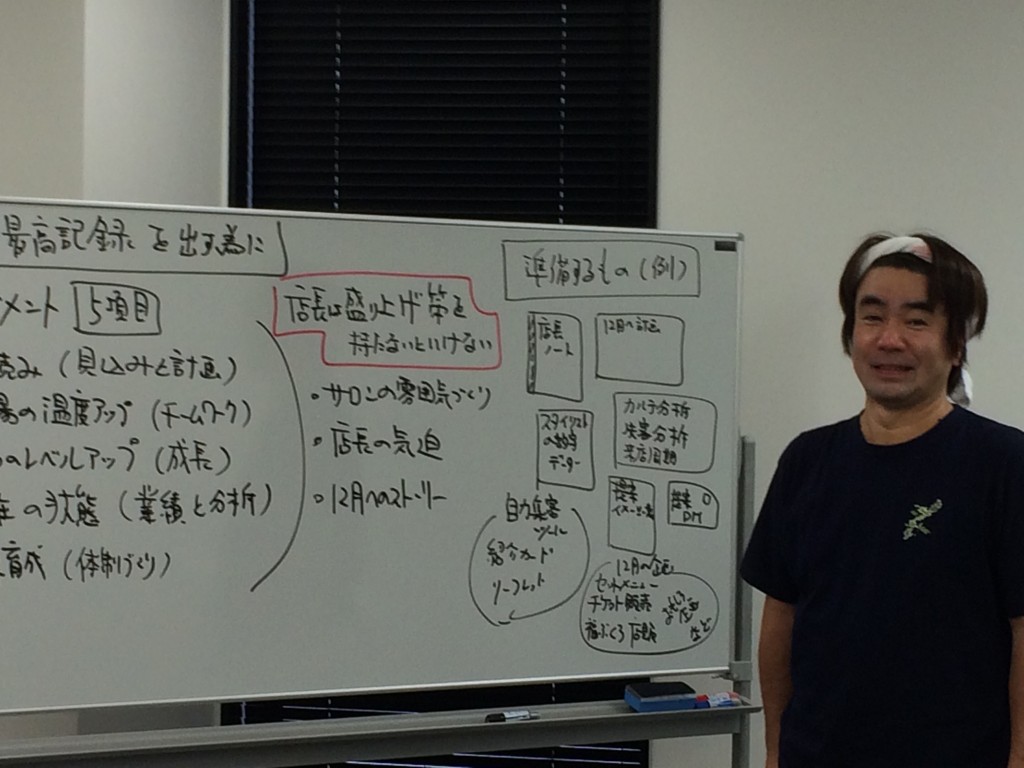 最高記録を出す為に
メント 5項目
読み(見込みと計画)
場の温度アップ(チームワーク)
のレベルアップ(成長)
在の状態(業績と分析)
育成(体制づくり)
店長は盛り上げ策を
持たないといけない
・サロンの雰囲気づくり
・店長の気迫
・12月へのストーリー
準備するもの(例)
店長
ノート
12月の計画
スタイリスト
の
データー
カルテ分析
失客分析
来店周期
自力集客
ツール
紹介カード
リーフレット
DM
12月の企画
セットメニュー
チケット販売
福ぶくろ